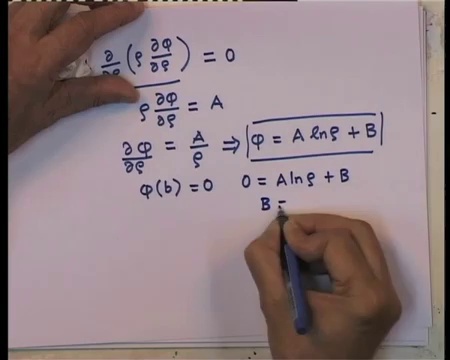 ∂/∂ρ (ρ ∂φ/∂ρ) = 0
ρ ∂φ/∂ρ = A
∂φ/∂ρ = A/ρ ⇒ φ = A lnρ + B
φ(b) = 0 0 = A lnρ + B
B =